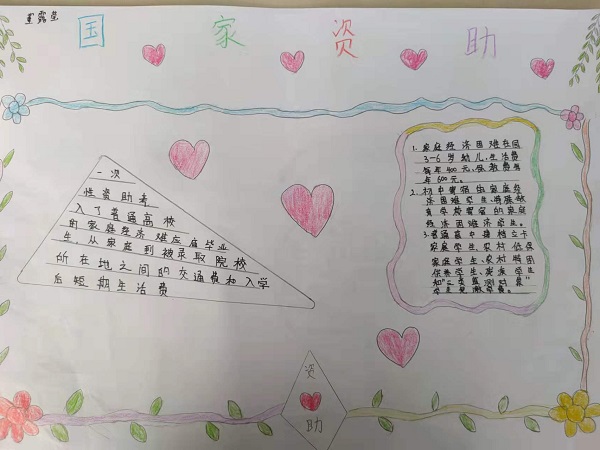 国家资助
一次
性资助考
入了普通高校
的家庭经济难应届毕业
生，从家庭到被录取院校
所在地之间的交通费和入学
后短期生活费
1. 家庭经济困难在园
3-6岁幼儿，生活费
每年400元，保教费每
年600元。
2. 初中寄宿生家庭经
济困难学生、特殊教
育学校寄宿的家庭
经济困难学生。
3. 普通高中建档立卡
家庭学生、农村低保
家庭学生、农村特困
供养学生、残疾学生
和"三类监测对象"
学生免除学费。
资
助